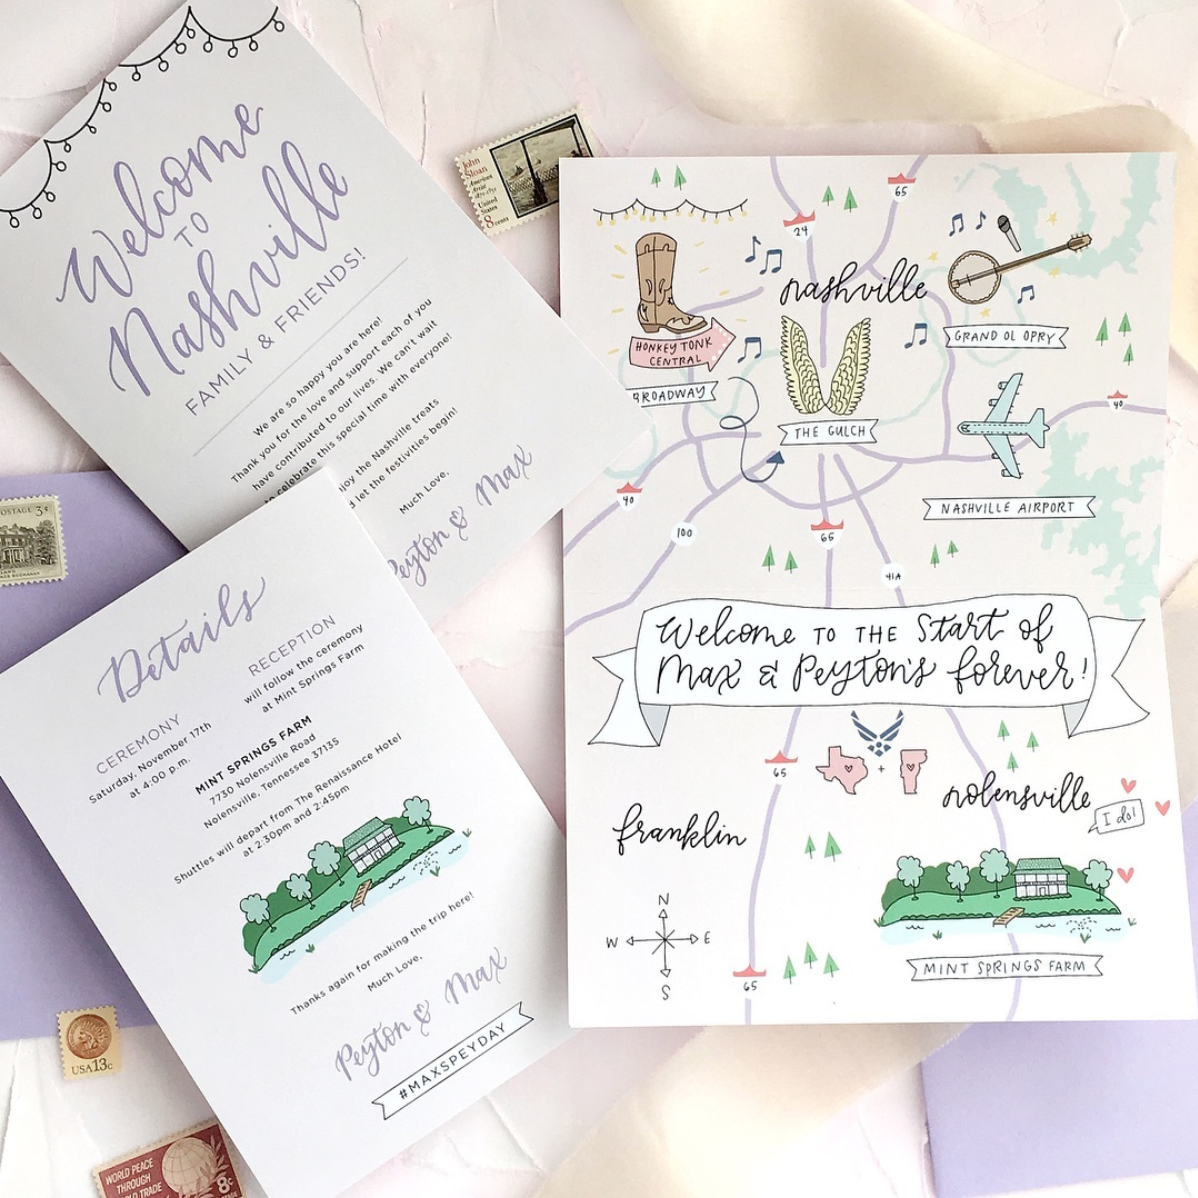 Welcome
TO
Nashville
FAMILY & FRIENDS!
We are so happy you are here!
Thank you for the love and support each of you
have contributed to our lives. We can't wait
to celebrate this special time with everyone!
joy the Nashville treats
d let the festivities begin!
Much Love,
Peyton & Max
Details
CEREMONY
Saturday, November 17th
at 4:00 p.m.
RECEPTION
will follow the ceremony
at Mint Springs Farm
MINT SPRINGS FARM
7730 Nolensville Road
Nolensville, Tennessee 37135
Shuttles will depart from The Renaissance Hotel
at 2:30pm and 2:45pm
Thanks again for making the trip here!
Much Love,
Peyton & Max
#MAXSPEYDAY
John
Sloan
American
Artist
1871-1951
United
States
8 cents
POSTAGE 3¢
USA 13c
WORLD PEACE
THROUGH
WORLD TRADE
8¢
65
24
nashville
HONKEY TONK
CENTRAL
BROADWAY
THE GULCH
GRAND OL OPRY
40
NASHVILLE AIRPORT
40
100
65
41A
Welcome TO THE Start of
Max & Peyton's forever!
65
+
franklin
nolensville
I do!
N
W E
S
MINT SPRINGS FARM
65